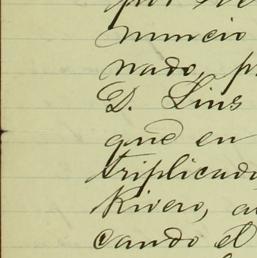 por
nuncio
nado, p
D. Luis
que en
triplicado
Rivero, a
cando el